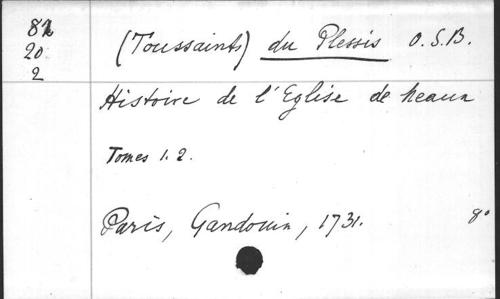 82
20
2
(Toussaints) du Plessis O.S.B.
Histoire de l'Eglise de Meaux
Tomes 1. 2.
Paris, Gandouin, 1731. 8°